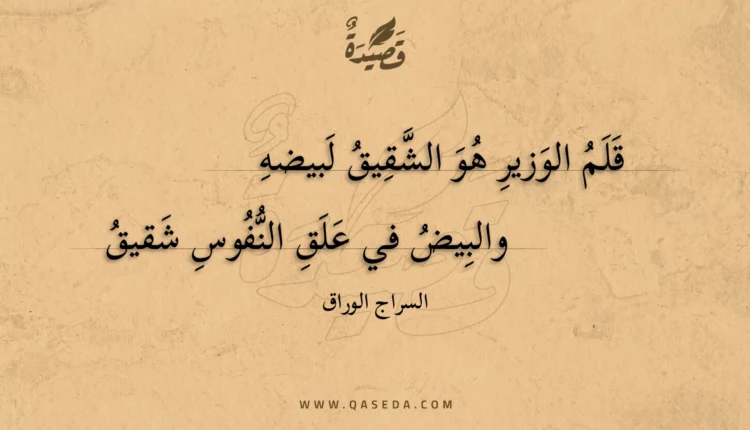 قَصِيْدَةٌ
قَلَمُ الوَزيرِ هُوَ الشَّقِيقُ لَبيضهِ
والبِيضُ في عَلَقِ النُّفُوسِ شَقيقُ
السراج الوراق
WWW.QASEDA.COM